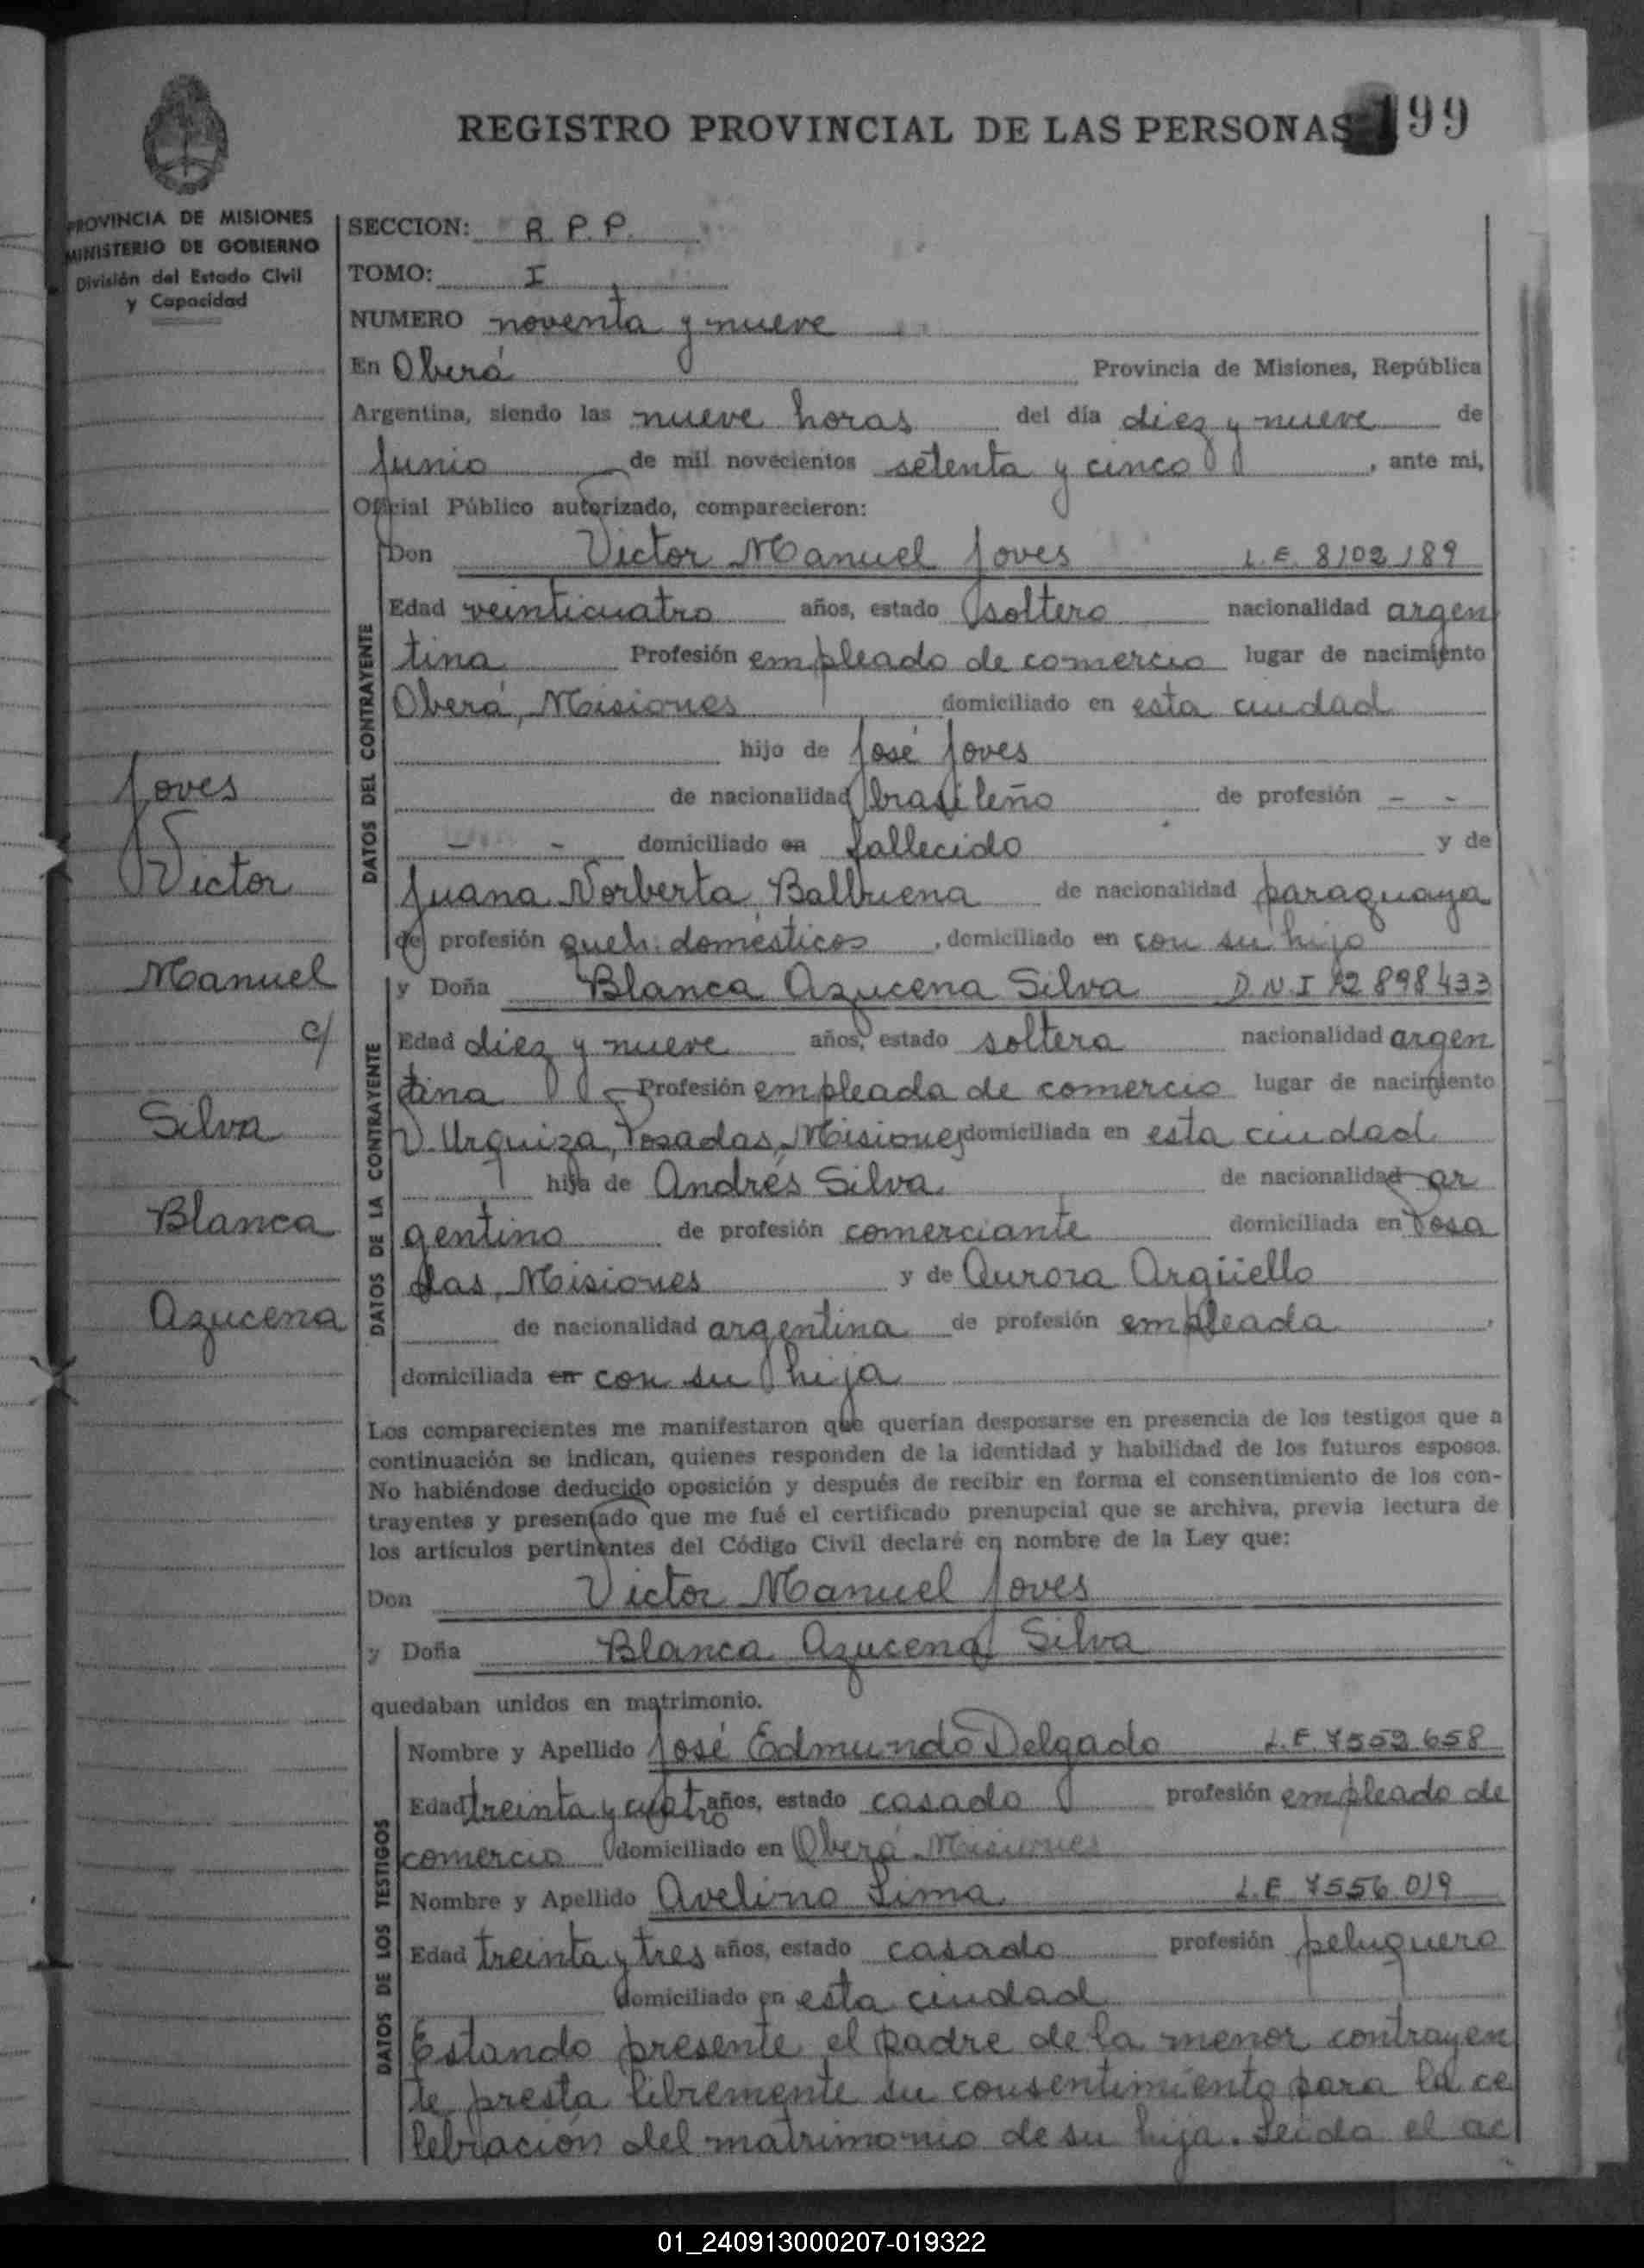 REGISTRO PROVINCIAL DE LAS PERSONAS 199
PROVINCIA DE MISIONES
MINISTERIO DE GOBIERNO
División del Estado Civil
y Capacidad
SECCION: R. P. P.
TOMO: I
NUMERO noventa y nueve
En Oberá Provincia de Misiones, República
Argentina, siendo las nueve horas del día diez y nueve de
Junio de mil novecientos setenta y cinco, ante mi,
Oficial Público autorizado, comparecieron:
DATOS DEL CONTRAYENTE
Don Victor Manuel Joves L.E. 8102189
Edad veinticuatro años, estado soltero nacionalidad argen
tina Profesión empleado de comercio lugar de nacimiento
Oberá, Misiones domiciliado en esta ciudad
hijo de José Joves
de nacionalidad brasileño de profesión - -
- - domiciliado en fallecido y de
Juana Norberta Balbuena de nacionalidad paraguaya
de profesión queh. domésticos, domiciliado en con su hijo
Joves
Victor
Manuel
c/
Silva
Blanca
Azucena
DATOS DE LA CONTRAYENTE
y Doña Blanca Azucena Silva D.N.I 12898433
Edad diez y nueve años, estado soltera nacionalidad argen
tina Profesión empleada de comercio lugar de nacimiento
V. Urquiza, Posadas, Misiones domiciliada en esta ciudad
hija de Andrés Silva de nacionalidad ar
gentino de profesión comerciante domiciliada en Posa
das, Misiones y de Aurora Argüello
de nacionalidad argentina de profesión empleada,
domiciliada en con su hija
Los comparecientes me manifestaron que querían desposarse en presencia de los testigos que a
continuación se indican, quienes responden de la identidad y habilidad de los futuros esposos.
No habiéndose deducido oposición y después de recibir en forma el consentimiento de los con-
trayentes y presentado que me fué el certificado prenupcial que se archiva, previa lectura de
los artículos pertinentes del Código Civil declaré en nombre de la Ley que:
Don Victor Manuel Joves
y Doña Blanca Azucena Silva
quedaban unidos en matrimonio.
DATOS DE LOS TESTIGOS
Nombre y Apellido José Edmundo Delgado L.E. 7552.658
Edad treinta y cuatro años, estado casado profesión empleado de
comercio domiciliado en Oberá Misiones
Nombre y Apellido Avelino Lima L.E 7556.019
Edad treinta y tres años, estado casado profesión peluquero
domiciliado en esta ciudad
Estando presente el padre de la menor contrayen
te presta libremente su consentimiento para la ce
lebración del matrimonio de su hija. Leída el ac
01_240913000207-019322